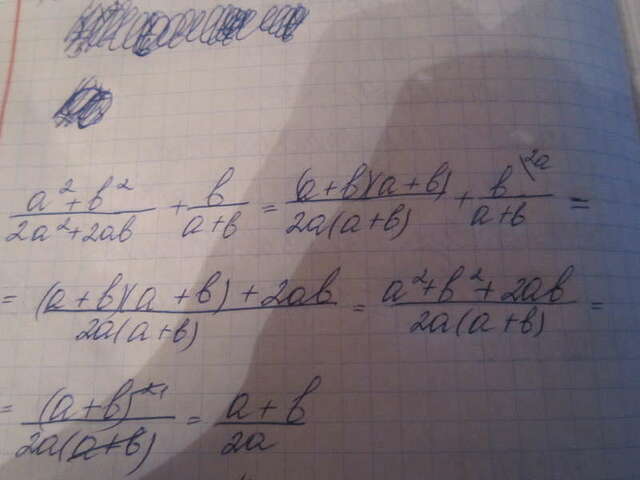 (a² + b²)/(2a² + 2ab) + b/(a + b) = (a + b)(a + b)/(2a(a + b)) + b\2a/(a + b) =
= ((a + b)(a + b) + 2ab)/(2a(a + b)) = (a² + b² + 2ab)/(2a(a + b)) =
= (a + b)²/(2a(a + b)) = (a + b)/(2a)